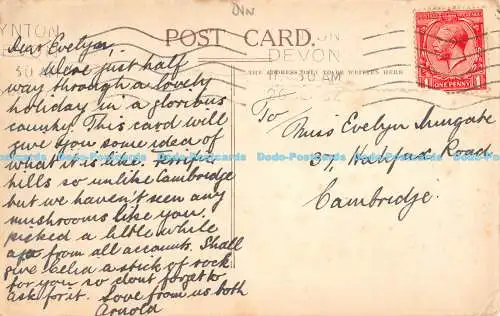 YNTON
DEVON
30 AM
POST CARD.
THE ADDRESS ONLY TO BE WRITTEN HERE
ONE PENNY
Dear Evelyn,
We're just half
way through a lovely
holiday in a glorious
country. This card will
give you some idea of
what it is like. Terrific
hills so unlike Cambridge
but we haven't seen any
mushrooms like you
picked a little while
ago from all accounts. Shall
give a stick of rock
for you so dont forget to
ask for it. Love from us both
Arnold
To
Miss Evelyn Mungate
37, Halifax Road
Cambridge.
Dodo-Postcards Dodo-Postcards Dodo-Postcards Dodo-Postcards